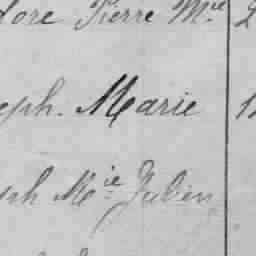 dore Pierre Mie 2
eph. Marie 1
ph Mie Julien